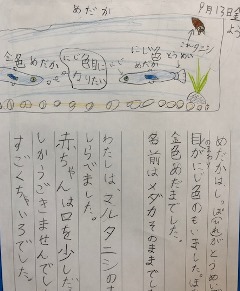 めだか
9月13日金
よう
これタニシ
金色
めだか
にじ色目に
なりたい
にじ色
とうめい
めだか
めだかは、しっぽのねがとうめいで
目がにじ色のもいました。ほ
金色めだまでした。
名前はメダカそのままでし
わたしは、マルタニシの
しらべました。
赤ちゃんは口を少しだ
しかうごきませんでし
すごくちゃいろでした。